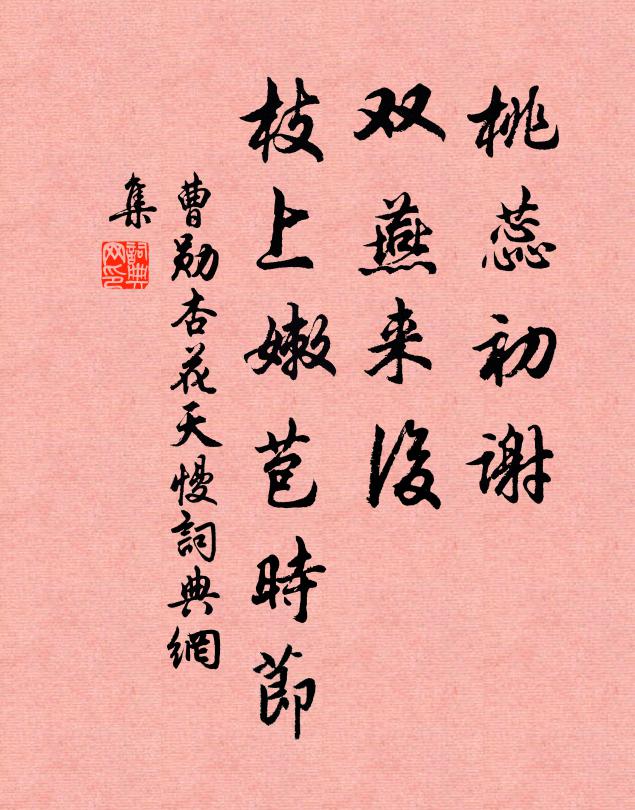 桃蕊初谢
双燕来后
枝上嫩苞時節
曹勋杏花天慢詞典網
集
詞典網印